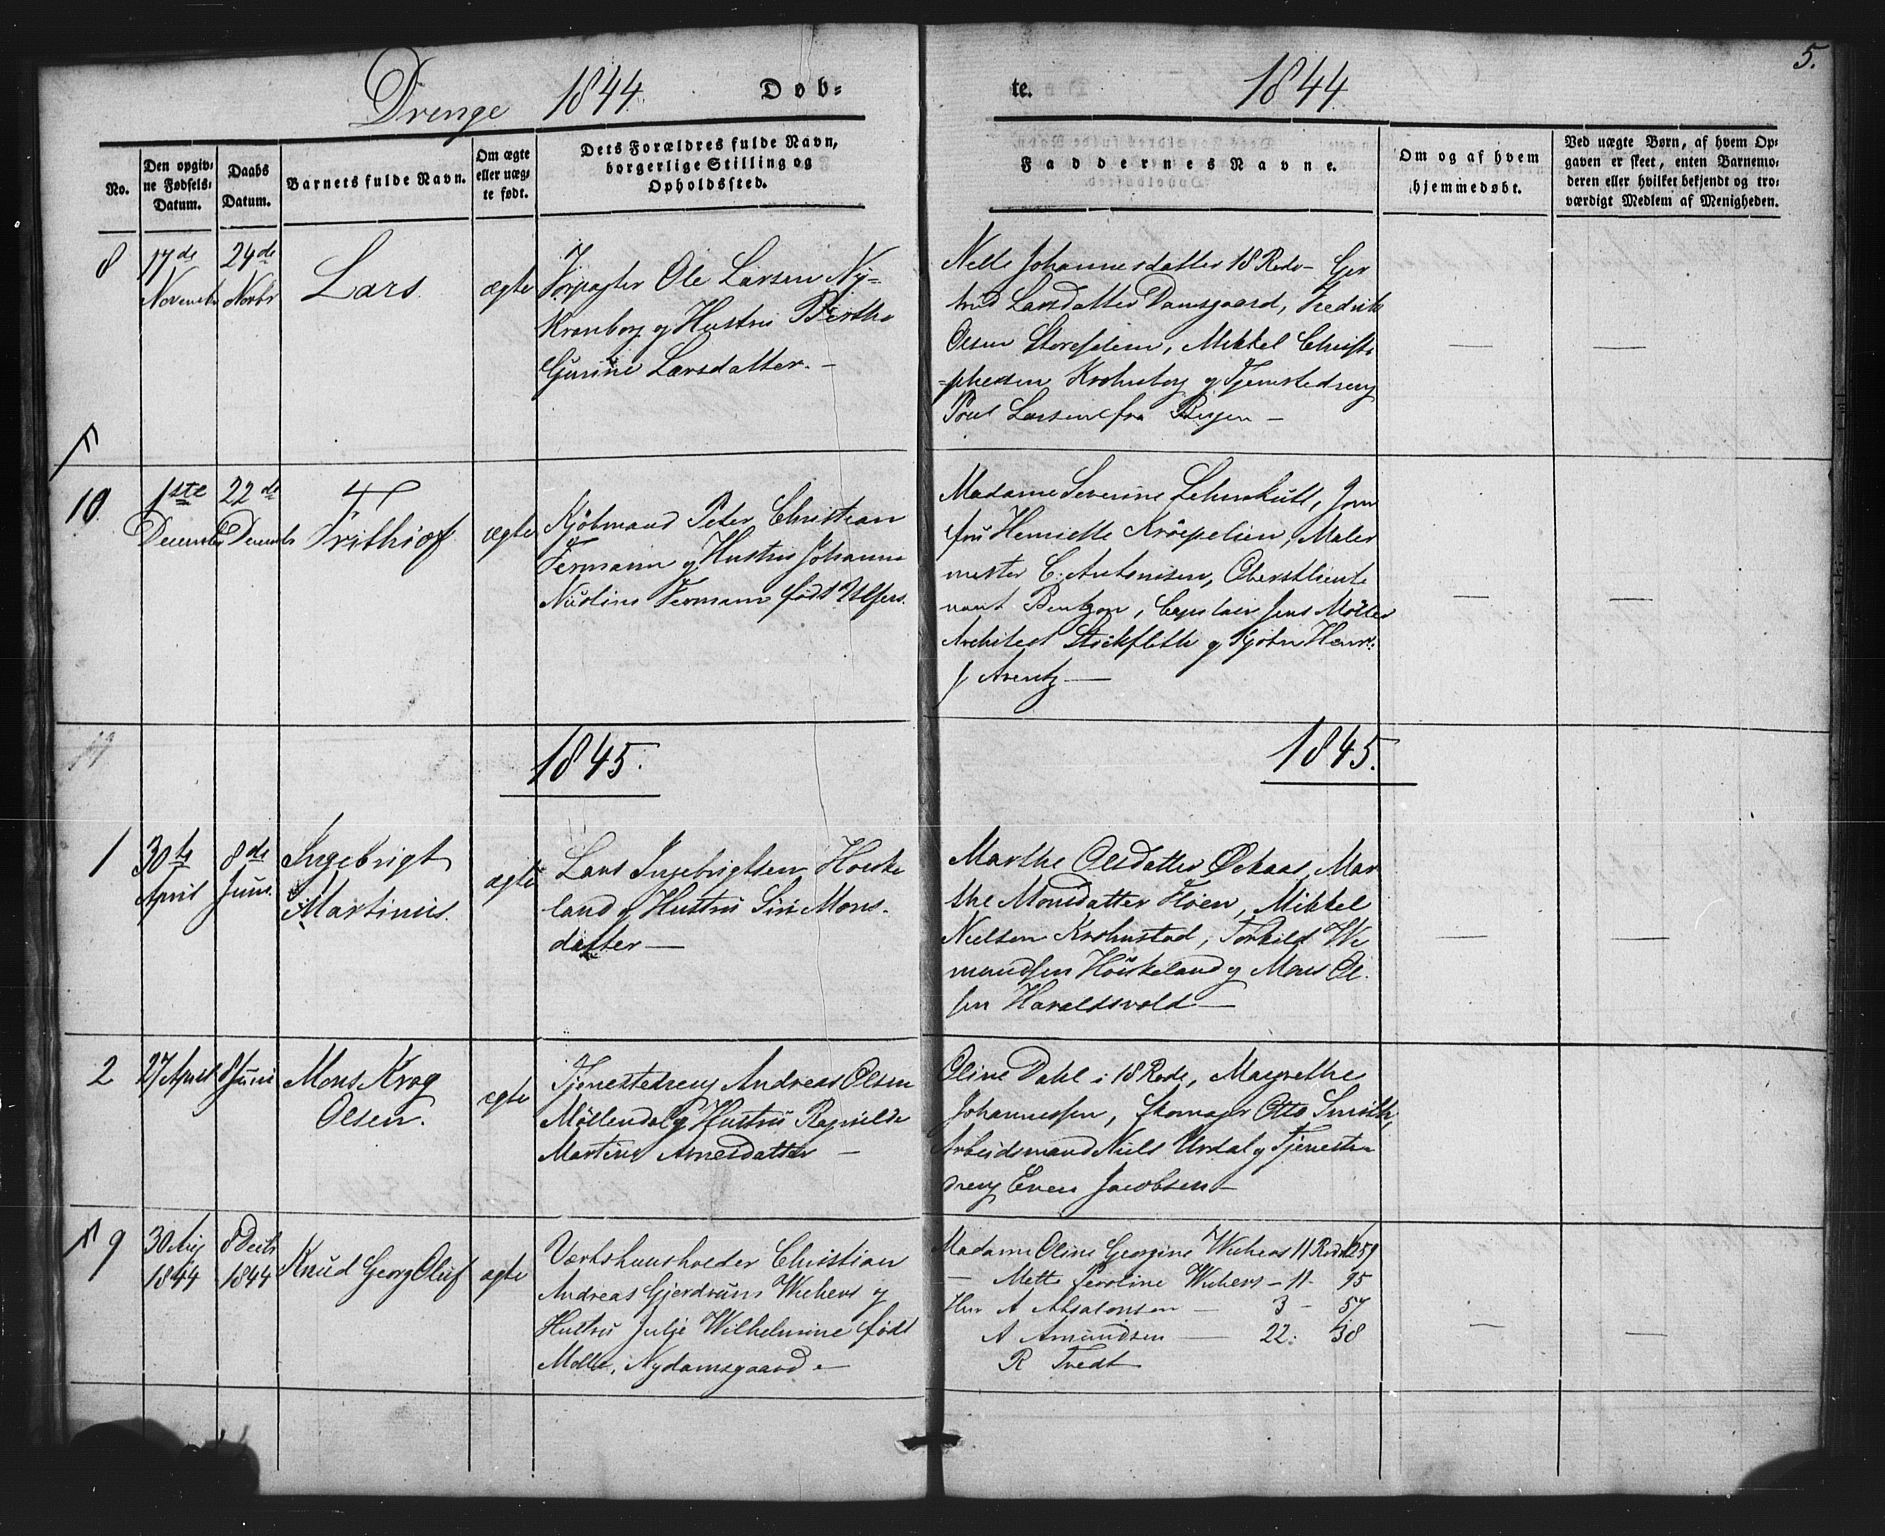 5.
Drenge 1844. Døb-
te. 1844
No.
Den opgiv-
ne Fødsels-
Datum.
Daabs
Datum.
Barnets fulde Navn.
Om ægte
eller uæg-
te født.
Dets Forældres fulde Navn,
borgerlige Stilling og
Opholdssted.
Faddernes Navne.
Om og af hvem
hjemmedøbt.
Ved uægte Børn, af hvem Op-
gaven er skeet, enten Barnemo-
deren eller hvilket bekjendt og tro-
værdigt Medlem af Menigheden.
8
17de
Novembr
24de
Novbr
Lars
ægte
Ole Larsen Ny-
Kronborg og Hustru Birthe
Gurine Larsdatter. -
Nelle Johannesdatter 18 Rode - Ger
trud Larsdatter Damsgaard, Fredrik
Olsen, Mikkel Christo
-phersen Krohnborg og Tjenestedreng
Poul Larsen fra Bergen -
10
1ste
December
22de
Decembr
Frithiof
ægte
Kjøbmand Peter Christian
Fermann og Hustru Johanne
Fermann født
Madame Severine, Jom
fru Henriette Krøepelien, Maler
mester C. Antonisen, Oberstlieute
nant Bentzon, Jens Møller
Architect Stockfleth og Kjøbm Henr.
f Arentz
1845.
1845.
1
30te
April
8de
Juni.
Ingebrigt
Martinus.
ægte
Lars Ingebrigtsen Høiske
land og Hustru Siri Mons-
datter
Marthe Olsdatter, Mar
the Monsdatter Fløen, Mikkel
Nielsen Krohnstad, Torkild We
mundsen Høiskeland og Mons Ol-
sen Haraldsvold
2
27 April
8 Juni
Mons Krog
Olsen.
ægte
Tjenestedreng Andreas Olsen
Møllendal og Hustru Ragnilde
Martine Arnesdatter -
Oline Dahl i 18 Rode, Margrethe
Johannessen, Skomager Otto Smith,
Arbeidsmand Niels Urdal og Tjeneste
dreng Even Jacobsen
9
30 Aug
1844
8 Decbr
1844
Knud Georg Oluf
ægte
Værtshuusholder Christian
Andreas Gjerdrum Wiehers og
Hustru Julje Wilhelmine født
Møller, Nydamsgaard -
Madame Oline Georgine Wiehers 11 Rode 259
- Mette Peroline Wiehers - 11 - 95
Hr A Absalonsen - 3 - 57
A Amundsen - 22: 38
R Tvedt